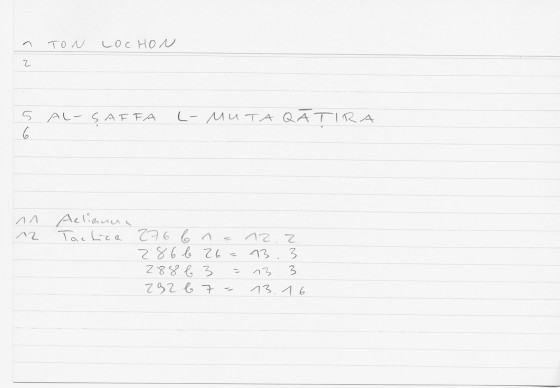 1 TON LOCHON
2
5 AL-ṢAFFA L-MUTAQĀṬIRA
6
11 Aelianus
12 Tactica 276 b 1 = 12.2
286 b 26 = 13.3
288 b 3 = 13 3
292 b 7 = 13.16